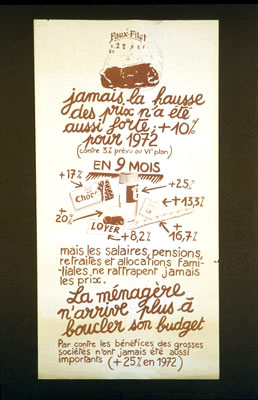 Faux-Filet
jamais la hausse
des prix n'a été
aussi forte: +10%
pour 1972
(contre 3% prévu au VIe plan)
EN 9 MOIS
+17%
+25%
Choc
+13,3%
+
20%
+
16,7%
LOYER
+8,2%
mais les salaires, pensions,
retraites et allocations fami-
-liales, ne rattrapent jamais
les prix.
La ménagère
n'arrive plus à
boucler son budget
Par contre les bénéfices des grosses
sociétés n'ont jamais été aussi
importants (+25% en 1972)